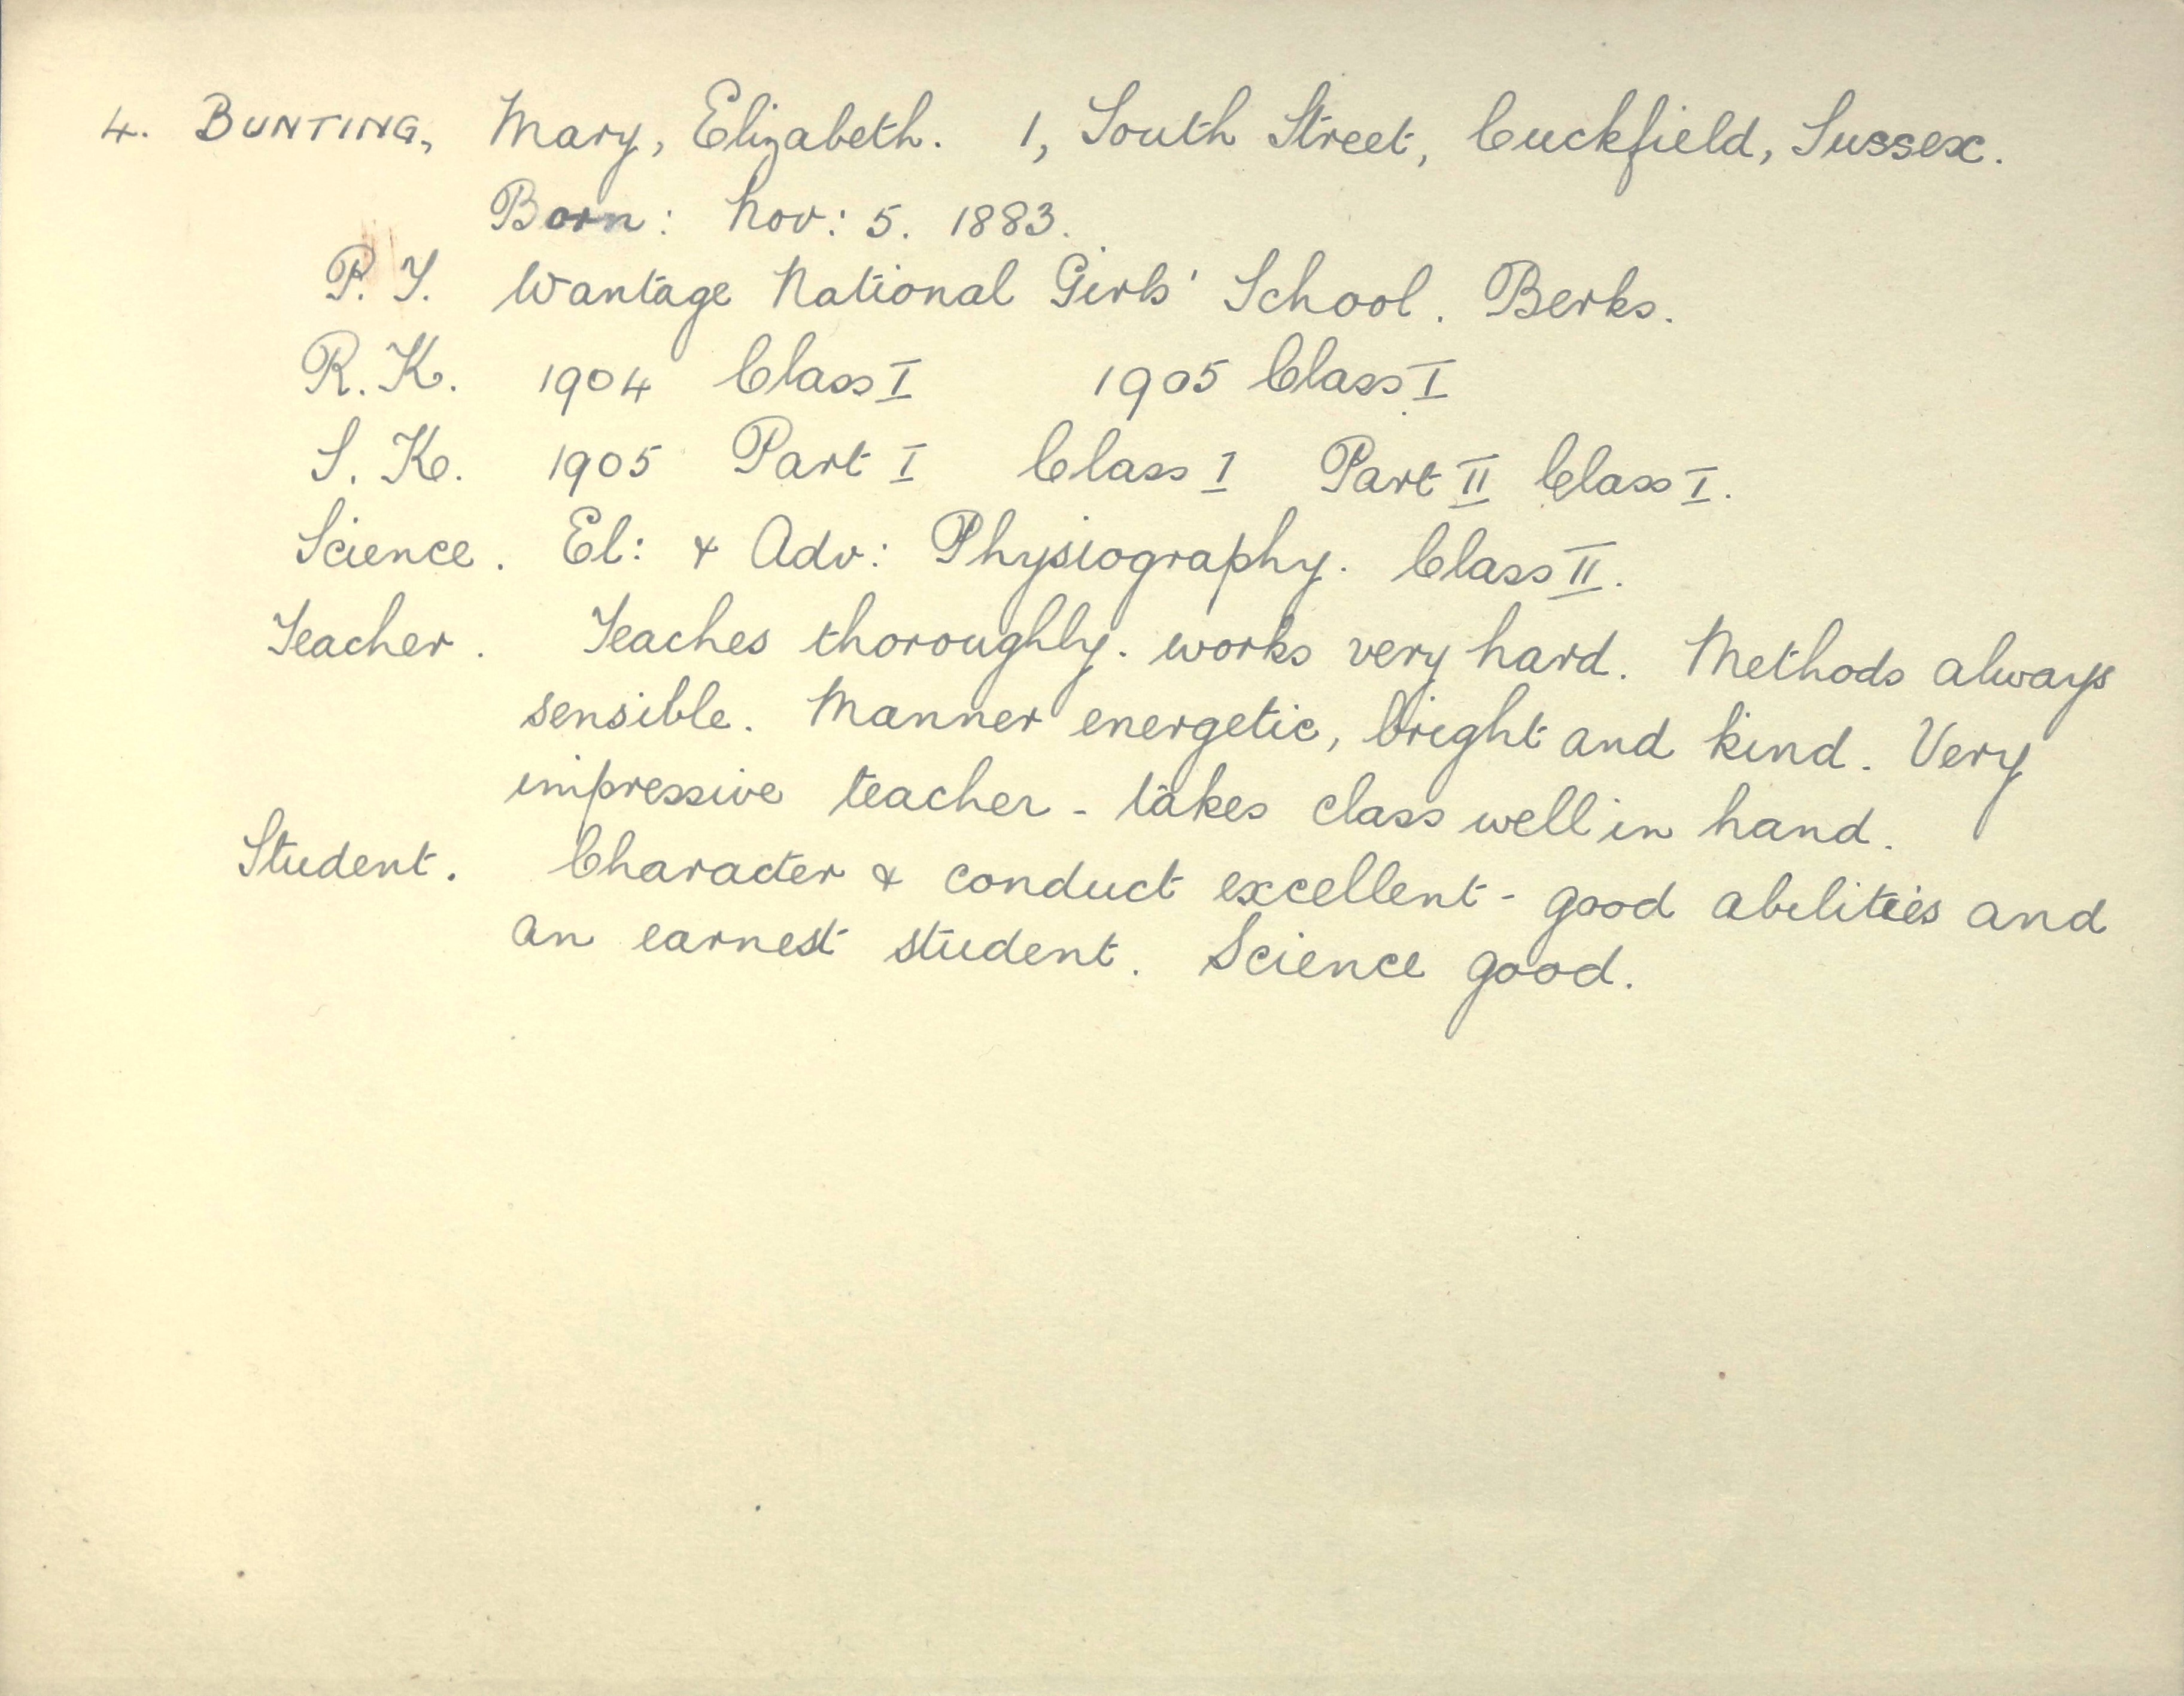 4. BUNTING, Mary, Elizabeth. 1, South Street, Cuckfield, Sussex.
Born: Nov: 5. 1883.
P. T. Wantage National Girls' School. Berks.
R. K. 1904 Class I 1905 Class I
S. K. 1905 Part I Class I Part II Class I.
Science. El: & Adv: Physiography. Class II.
Teacher. Teaches thoroughly. works very hard. Methods always
sensible. Manner energetic, bright and kind. Very
impressive teacher - takes class well in hand.
Student. Character & conduct excellent - good abilities and
an earnest student. Science good.